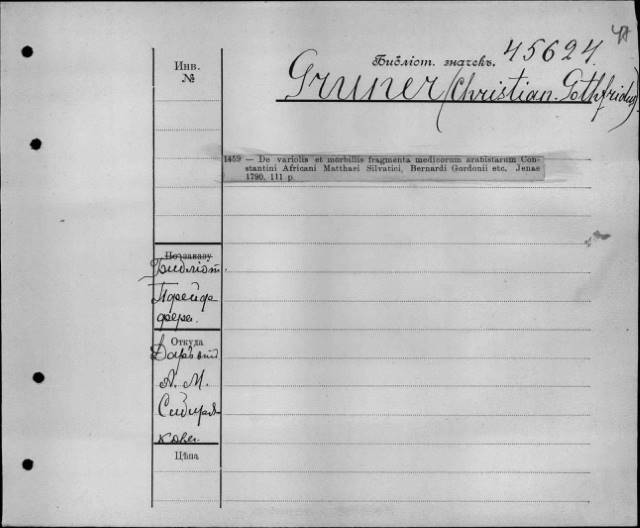 47
Библіот. значекъ. 45624.
Инв.
№
Gruner (Christian. Gothfridus)
1459 — De variolis et morbillis fragmenta medicorum arabistarum Con-
stantini Africani Matthaei Silvatici, Bernardi Gordonii etc. Jenae
1790, 111 p.
По заказу
Библіот.
Пфейф
фера.
Откуда
Даръ
А. М.
Сибиря-
кова
Цѣна